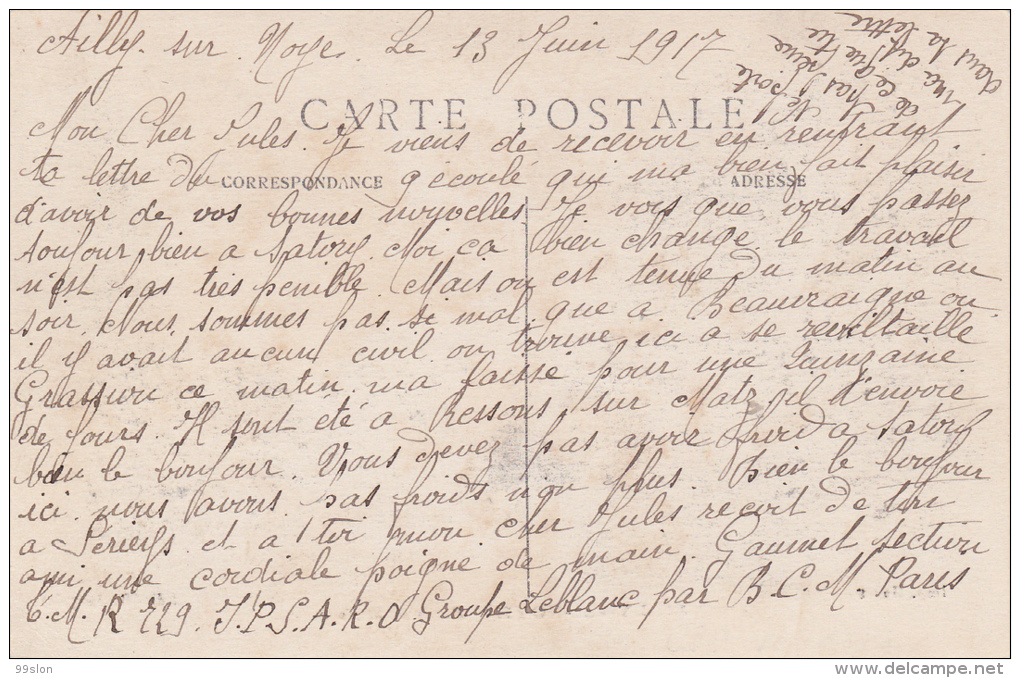 Ailly sur Noye. Le 13 Juin 1917
Je porte
pas
de ce que tu
dans ta lettre
CARTE POSTALE
Mon Cher Jules. Je viens de recevoir en rentrant
ta lettre du 9 écoulé qui ma bien fait plaisir
CORRESPONDANCE
ADRESSE
d'avoir de vos bonnes nouvelles Je vois que vous passez
toujour bien a Satory. Moi ça bien change. le travail
n'est pas très penible. Mais on est tenue du matin au
soir. Nous sommes pas si mal que a Beauvraigne ou
il y avait aucun civil. on trouve ici a se reviltaille
Grassion ce matin ma laissé pour une Quinzaine
de jours. Il sont été a Ressons sur Matz, il t'envoie
bien le bonjour. Vous devez pas avoir froid a Satory
ici nous avons pas froids non plus. Bien le bonjour
a et a toi mon cher Jules reçoit de ton
ami une cordiale poigne de main. Gaumet section
T.M. R 729. T.P.S.A.R.O Groupe Leblanc par B.C.M. Paris
99slon
delcampe.net